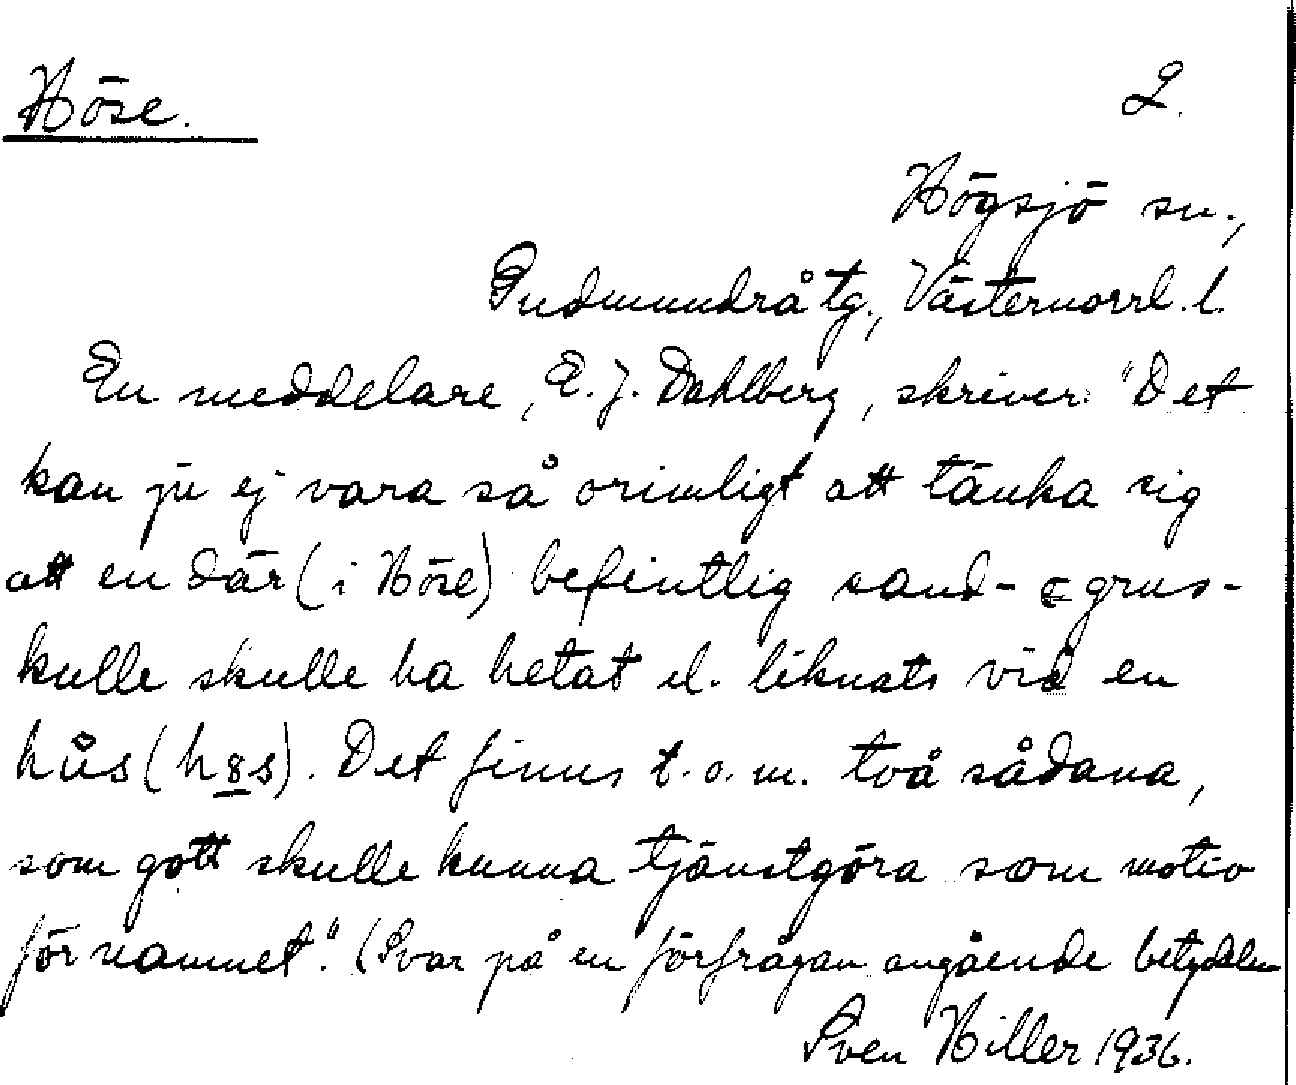 Höse. 2.
Högsjö sn.,
Gudmundrå tg., Västernorrl. l.
En meddelare, E. J. Dahlberg, skriver: "Det
kan ju ej vara så orimligt att tänka sig
att en där (i Höse) befintlig sand- & grus-
kulle skulle ha hetat el. liknats vid en
hůs (h8s). Det finns t.o.m. två sådana,
som gott skulle kunna tjänstgöra som motiv
för namnet." (Svar på en förfrågan angående betydelsen
Sven Hiller 1936.